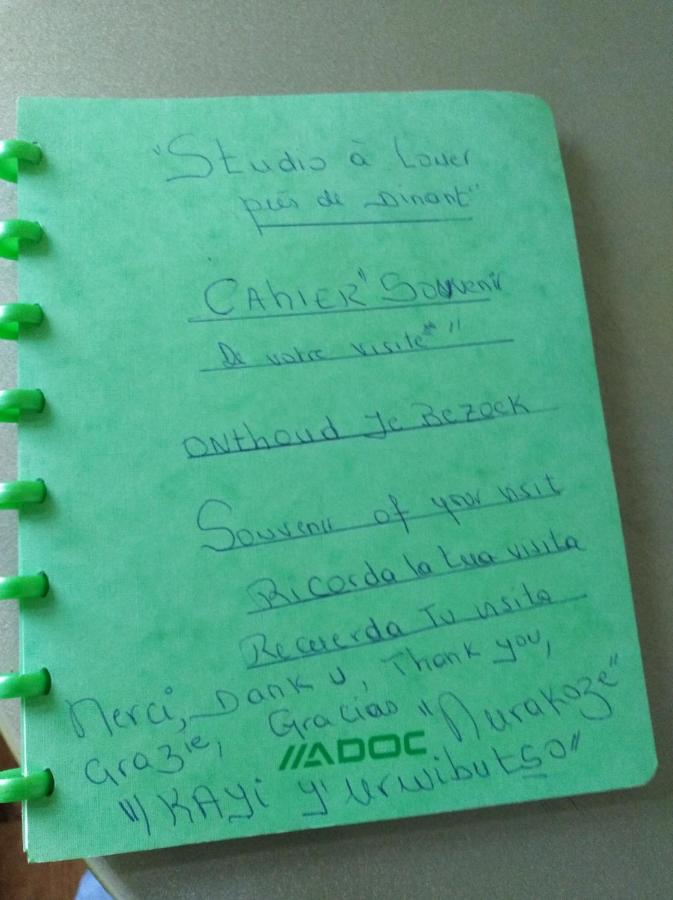 "Studio à Louer
près de Dinant"
CAhiER "Souvenir
De votre visite* "
ONthoud Je BEZOEK
Souvenir of your visit
Ricorda la tua visita
Recuerda Tu visita
Merci, Dank U, Thank you,
Grazie, Gracias "Murakoze"
//ADOC
"/ KAyi y'urwibutso"